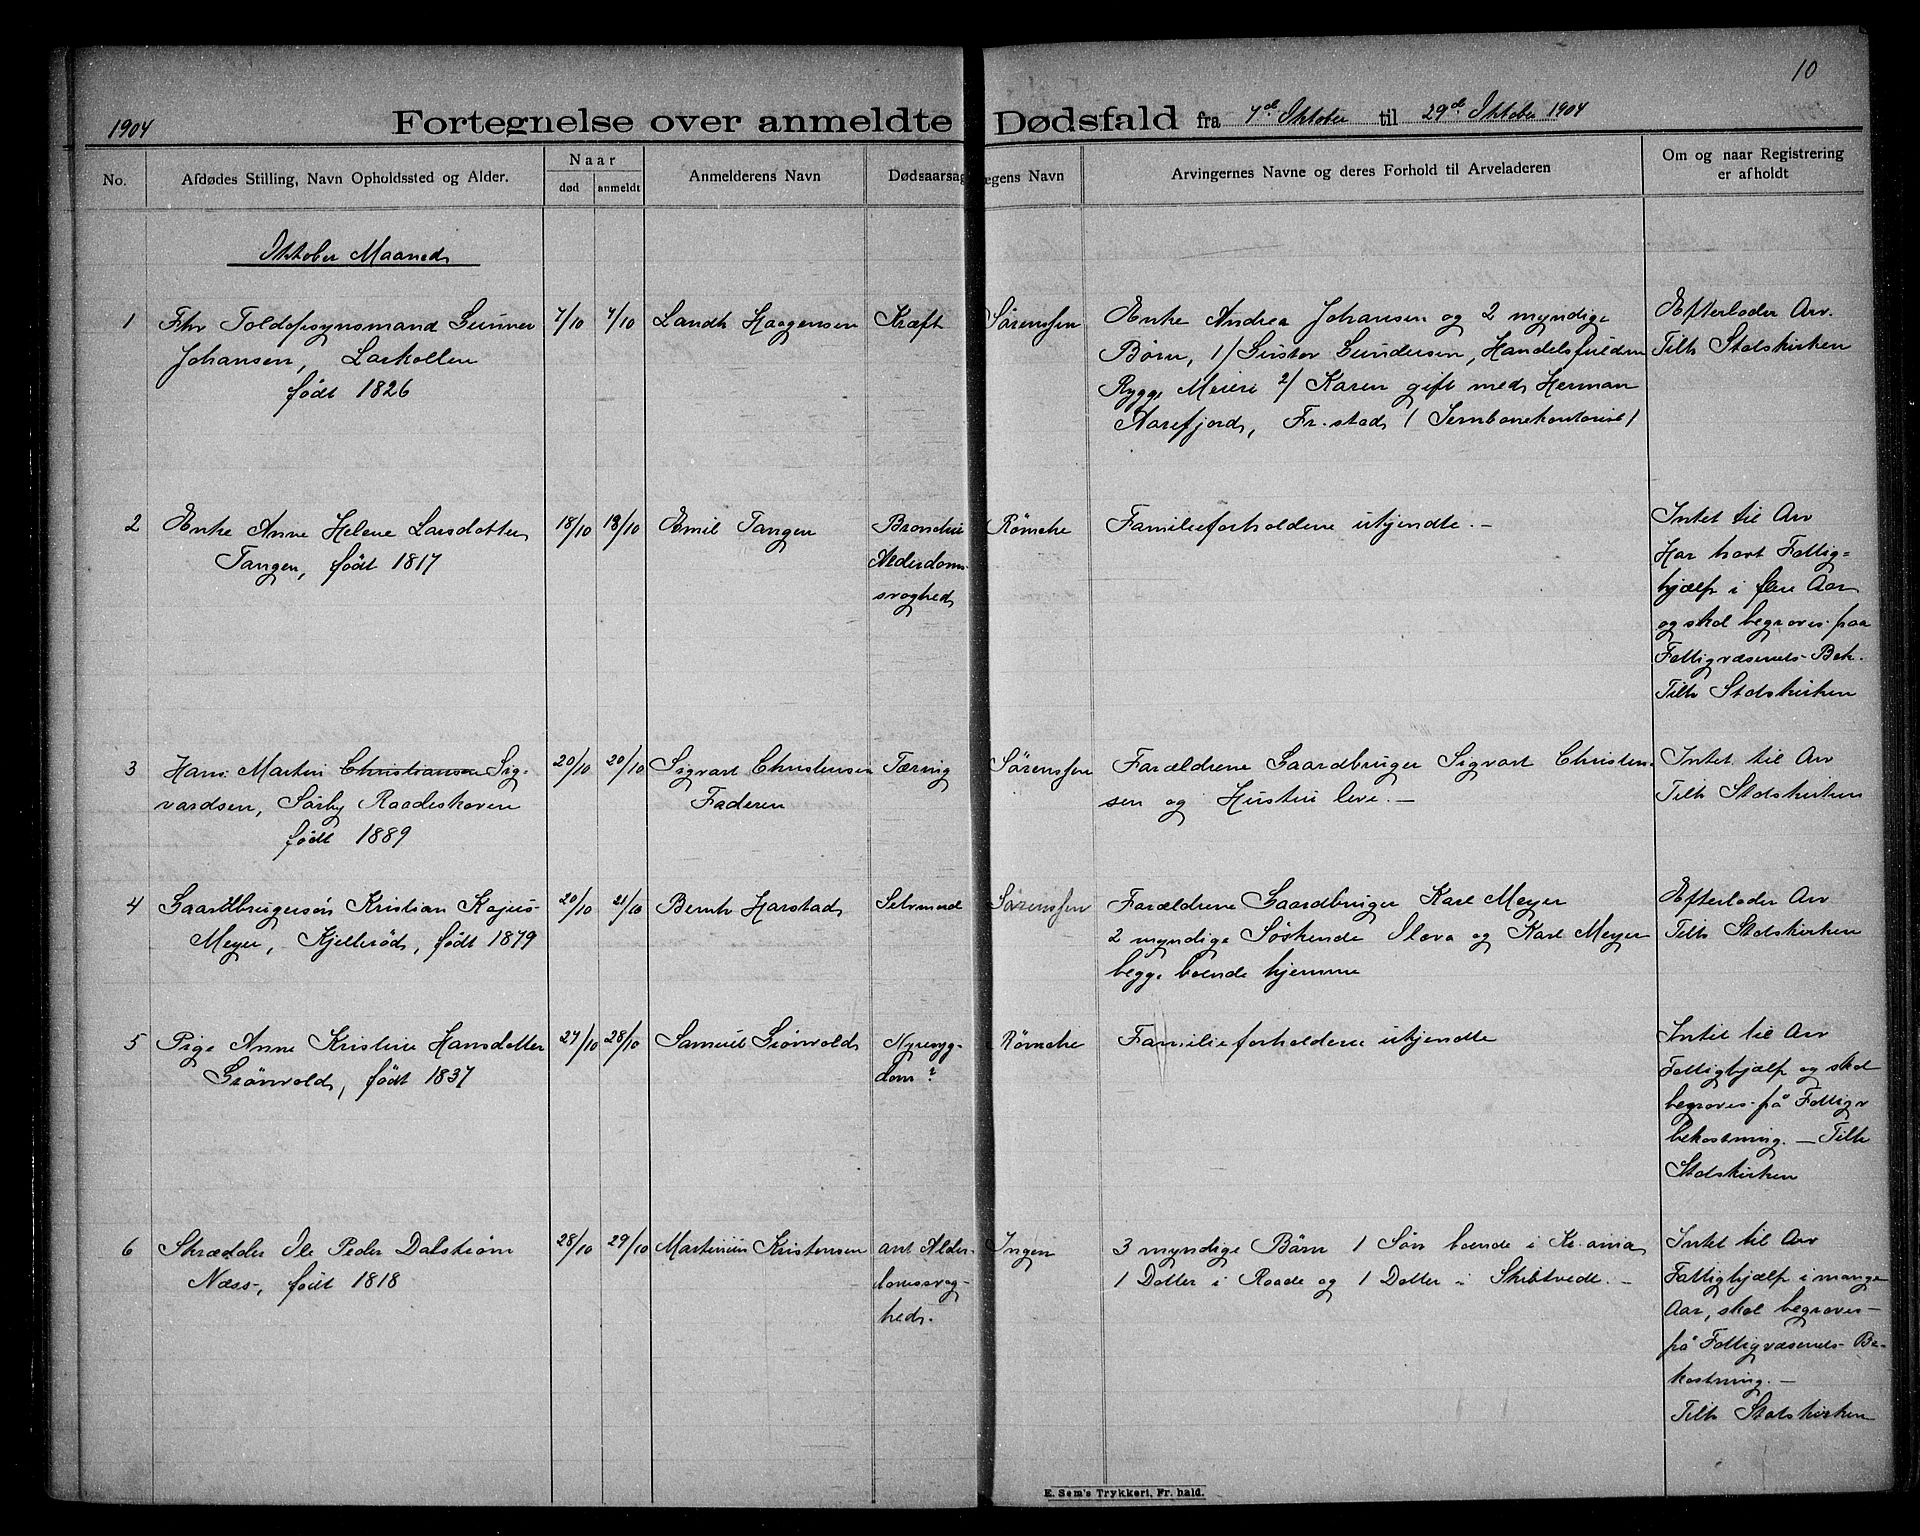 10
1904 Fortegnelse over anmeldte Dødsfald fra 7de Oktober til 29de Oktober 1904
No. Afdødes Stilling, Navn Opholdssted og Alder. Naar død anmeldt Anmelderens Navn Dødsaarsag Lægens Navn Arvingernes Navne og deres Forhold til Arveladeren Om og naar Registrering er afholdt
Oktober Maaned
1 Fhv Toldopsynsmand Gunner
Johansen, Larkollen
født 1826
7/10 7/10 Landh Haagensen Kræft Sørenssen
Enke Andrea Johansen og 2 myndige
Børn, 1/ Gustav Gundersen, Handelsfuldm
Rygge Meieri 2/ Karen gift med Herman
Aarefjord, Fr.stad (Jernbanekontorist)
Efterlader Arv.
Tilh Statskirken
2 Enke Anne Helene Larsdatter
Tangen, født 1817
18/10 18/10 Emil Tangen
Bronchit
Alderdoms-
svaghed
Rømcke Familieforholdene ukjendte. -
Intet til Arv
Har havt Fattig=
hjælp i flere Aar
og skal begraves paa
Fattigvæsenets Bek.
Tilh Statskirken
3 Hans Martin Christiansen Sig-
vardsen, Sørby Raadeskoven
født 1889
20/10 20/10 Sigvart Christensen
Faderen
Tæring Sørenssen
Forældrene Gaardbruger Sigvart Christen-
sen og Hustru leve. -
Intet til Arv
Tilh Statskirken
4 Gaardbrugersøn Kristian Kajus
Meyer, Kjellerød, født 1879
20/10 21/10 Bernh Harstad Selvmord Sørenssen
Forældrene Gaardbruger Karl Meyer
2 myndige Søskende Olava og Karl Meyer
begge boende hjemme
Efterlader Arv
Tilh Statskirken
5 Pige Anne Kristine Hansdatter
Grønvold, født 1837
27/10 28/10 Samuel Grønvold
Nyresyg-
dom?
Rømcke Familieforholdene ukjendte
Intet til Arv
Fattighjælp og skal
begraves på Fattigv
bekostning. - Tilh
Statskirken
6 Skrædder Ole Peder Dalstrøm
Næss, født 1818
28/10 29/10 Martinius Kristensen
ant Alder-
domssvag-
hed.
Ingen 3 myndige Børn 1 Søn boende i Kr.ania
1 Datter i Raade og 1 Datter i Skibtvedt. -
Intet til Arv
Fattighjælp i mange
Aar, skal begraves
på Fattigvæsenets Be-
kostning. -
Tilh Statskirken
E. Sem's Trykkeri, Fr.hald.